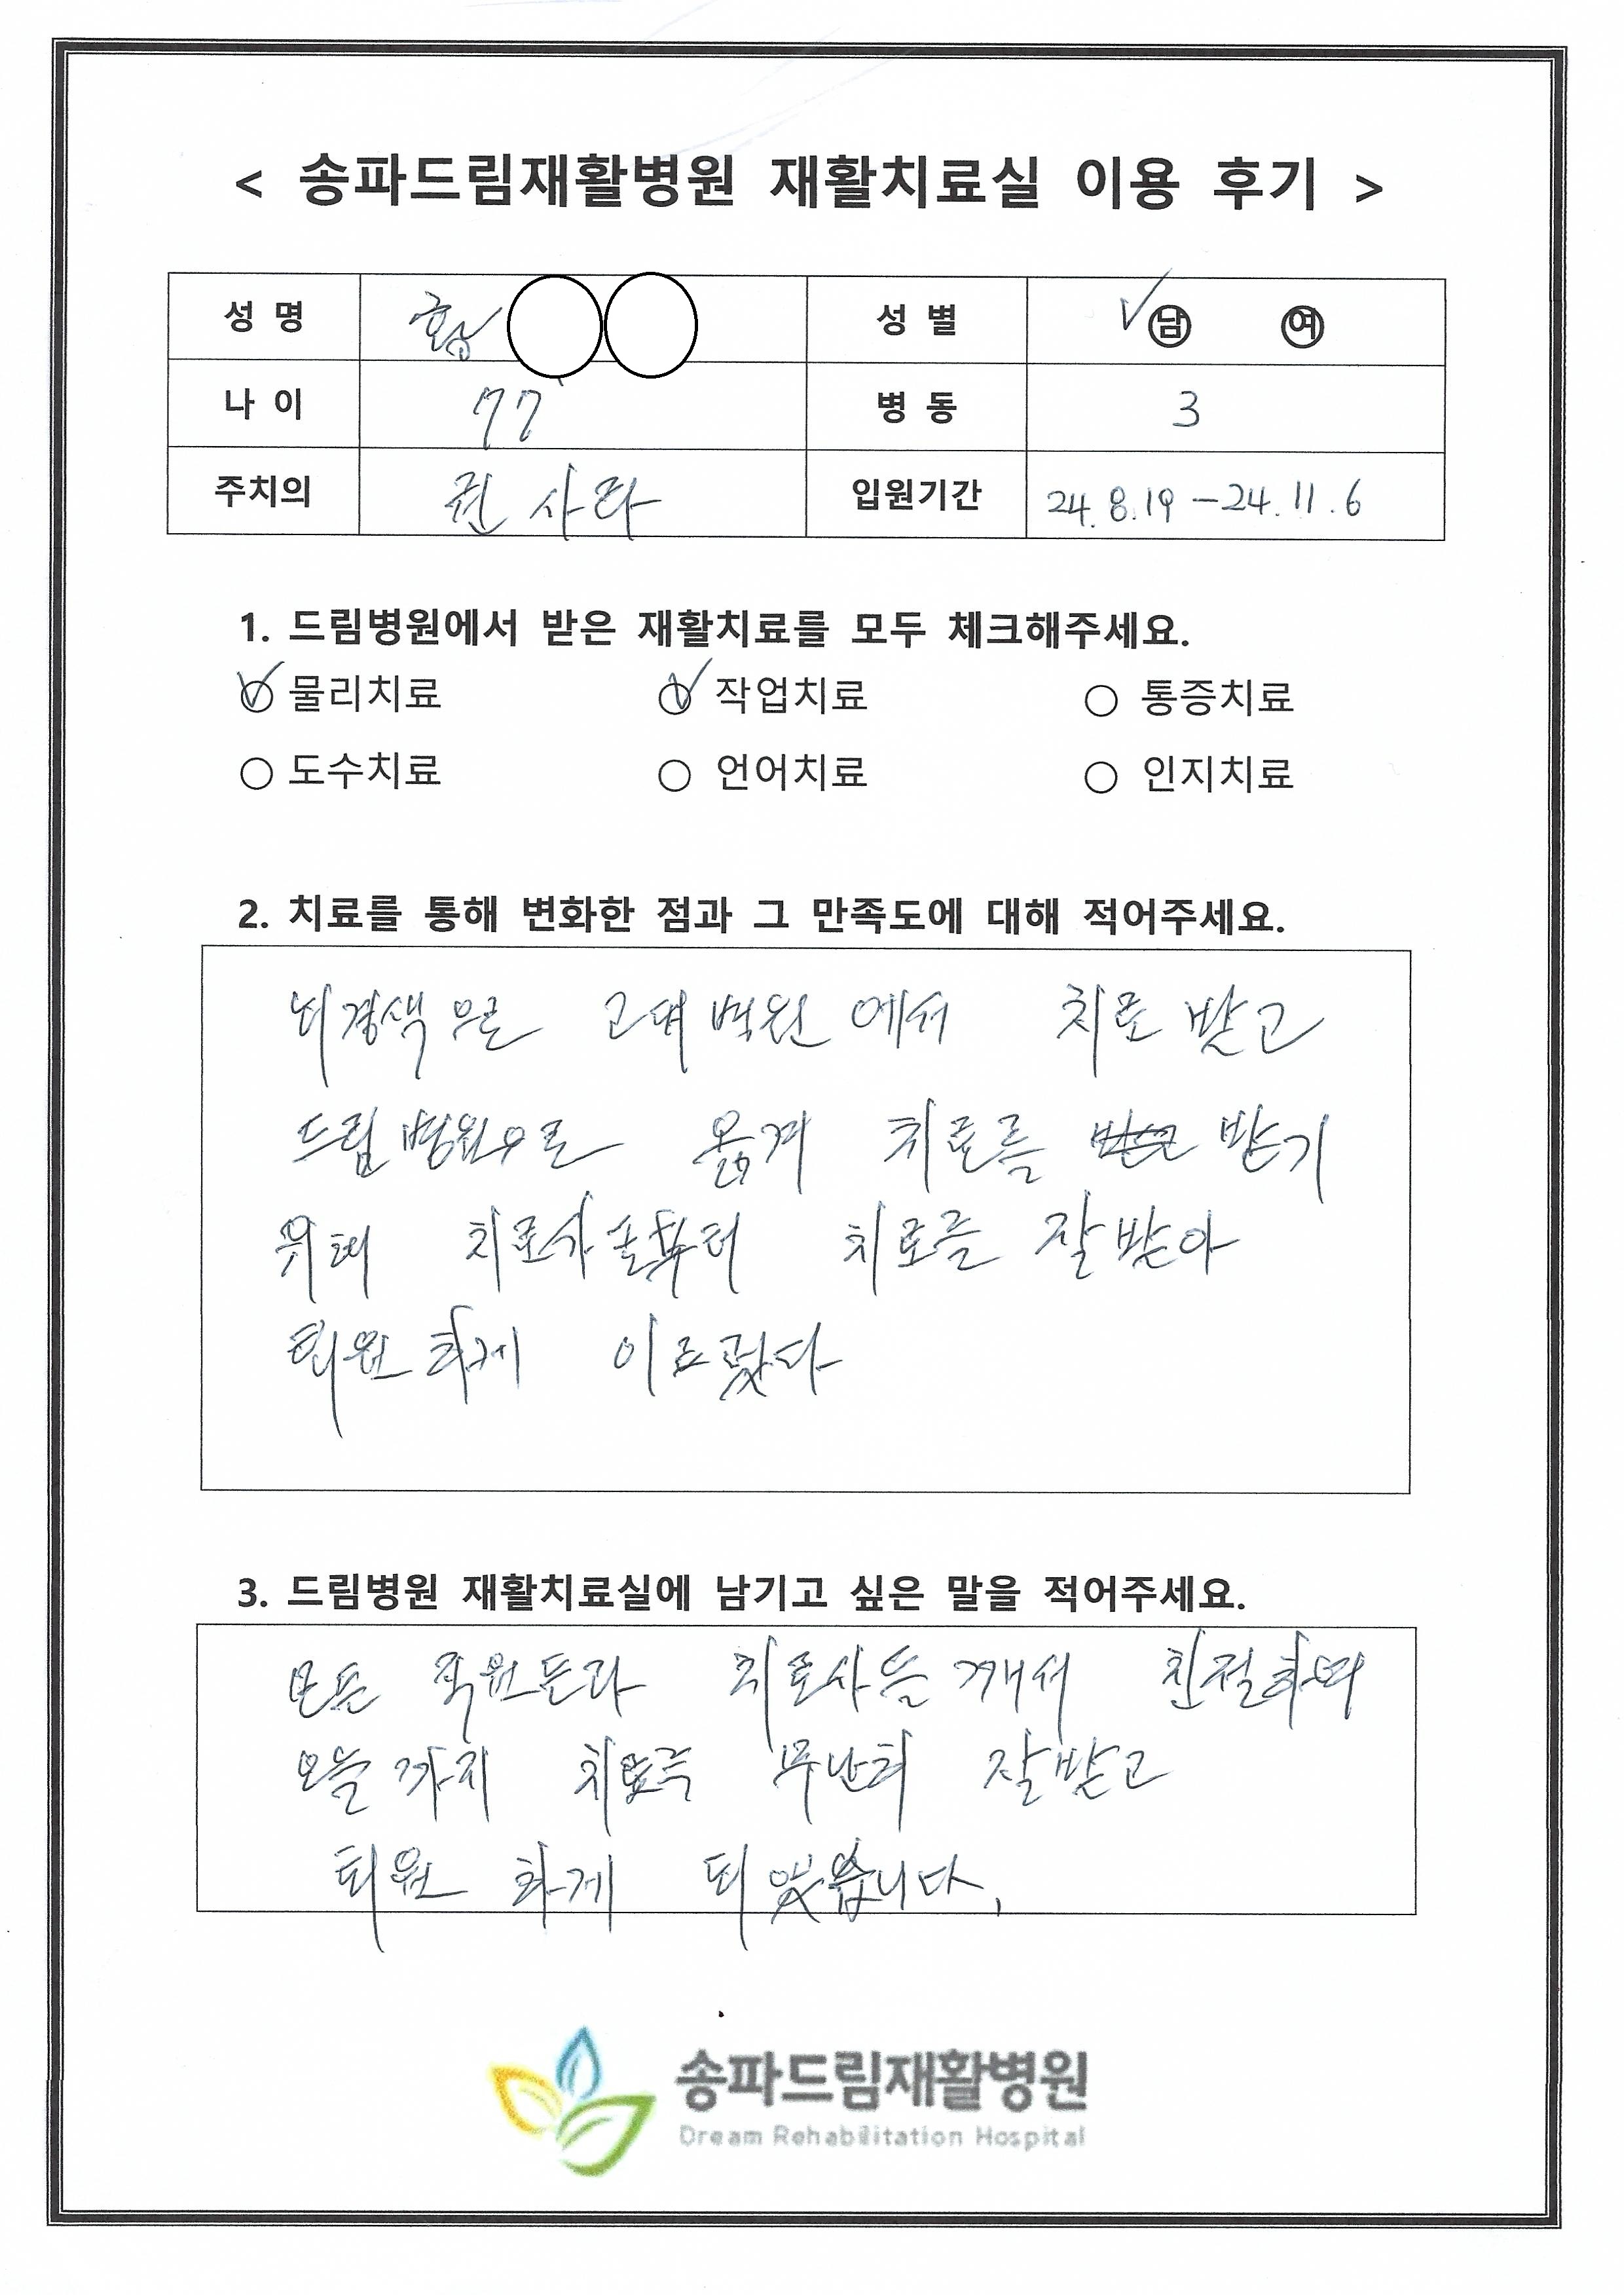 < 송파드림재활병원 재활치료실 이용 후기 >
성 명 황 성 별 남 여
나 이 77 병 동 3
주치의 권 사라 입원기간 24.8.19 - 24.11.6
1. 드림병원에서 받은 재활치료를 모두 체크해주세요.
물리치료 작업치료 통증치료
도수치료 언어치료 인지치료
2. 치료를 통해 변화한 점과 그 만족도에 대해 적어주세요.
뇌경색으로 고대병원에서 치료 받고
드림병원으로 옮겨 치료를 받기
위해 치료사 치료를 잘 받아
퇴원 하게 이르렀다
3. 드림병원 재활치료실에 남기고 싶은 말을 적어주세요.
모든 직원들과 치료사들께서 친절하며
오늘까지 치료를 무난히 잘 받고
퇴원 하게 되었습니다.
송파드림재활병원
Dream Rehabilitation Hospital